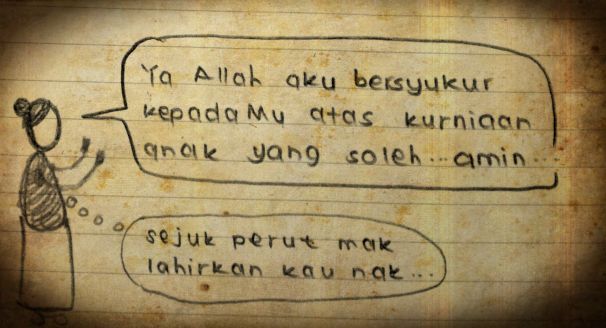 Ya Allah aku bersyukur
kepadaMu atas kurniaan
anak yang soleh... amin...
sejuk perut mak
lahirkan kau nak...